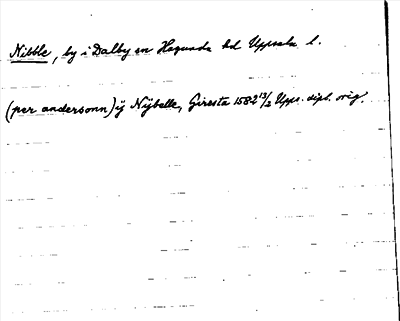 Nibble, by i Dalby sn Hagunda hd Uppsala l.
(per andersonn) ij Nijbelle, Giresta 1582 13/2 Upps. dipl. orig.